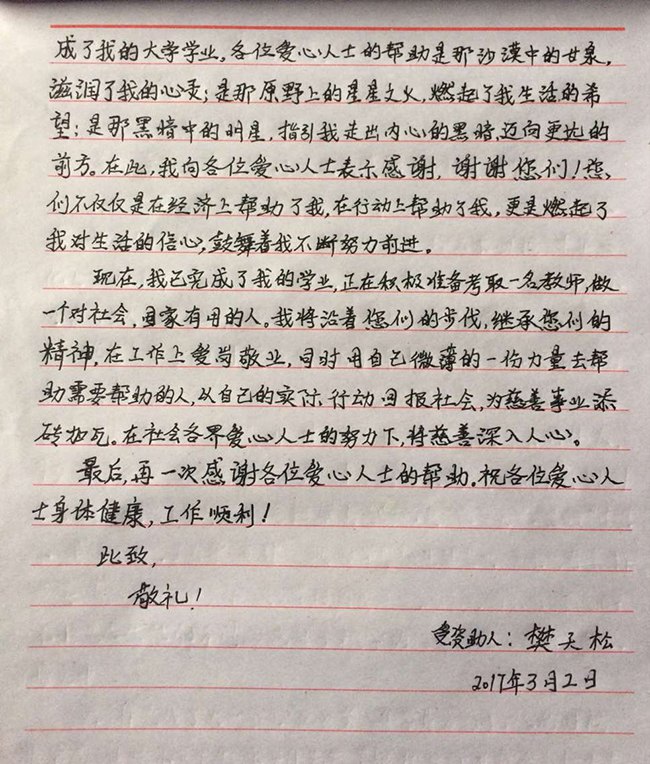 成了我的大学学业。各位爱心人士的帮助是那沙漠中的甘泉,
滋润了我的心灵;是那原野上的星星之火,燃起了我生活的希
望;是那黑暗中的明星,指引我走出内心的黑暗,迈向更远的
前方。在此,我向各位爱心人士表示感谢,谢谢您们!您
们不仅仅是在经济上帮助了我,在行动上帮助了我,更是燃起了
我对生活的信心,鼓舞着我不断努力前进。
现在,我已完成了我的学业,正在积极准备考取一名教师,做
一个对社会,国家有用的人。我将沿着您们的步伐,继承您们的
精神,在工作上爱岗敬业,同时用自己微薄的一份力量去帮
助需要帮助的人,从自己的实际行动回报社会,为慈善事业添
砖加瓦。在社会各界爱心人士的努力下,将慈善深入人心。
最后,再一次感谢各位爱心人士的帮助。祝各位爱心人
士身体健康,工作顺利!
此致,
敬礼!
受资助人:樊天松
2017年3月2日